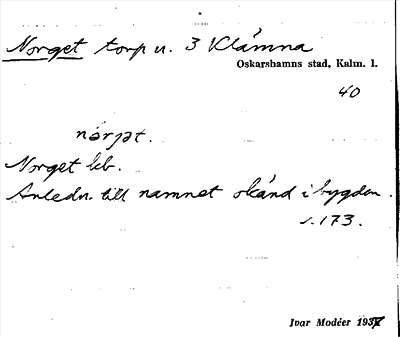 Norget torp u. 3 Klämna
Oskarshamns stad, Kalm. l.
40
nårjət.
Norget kb.
Anledn. till namnet okänd i bygden.
s. 173.
Ivar Modéer 1937